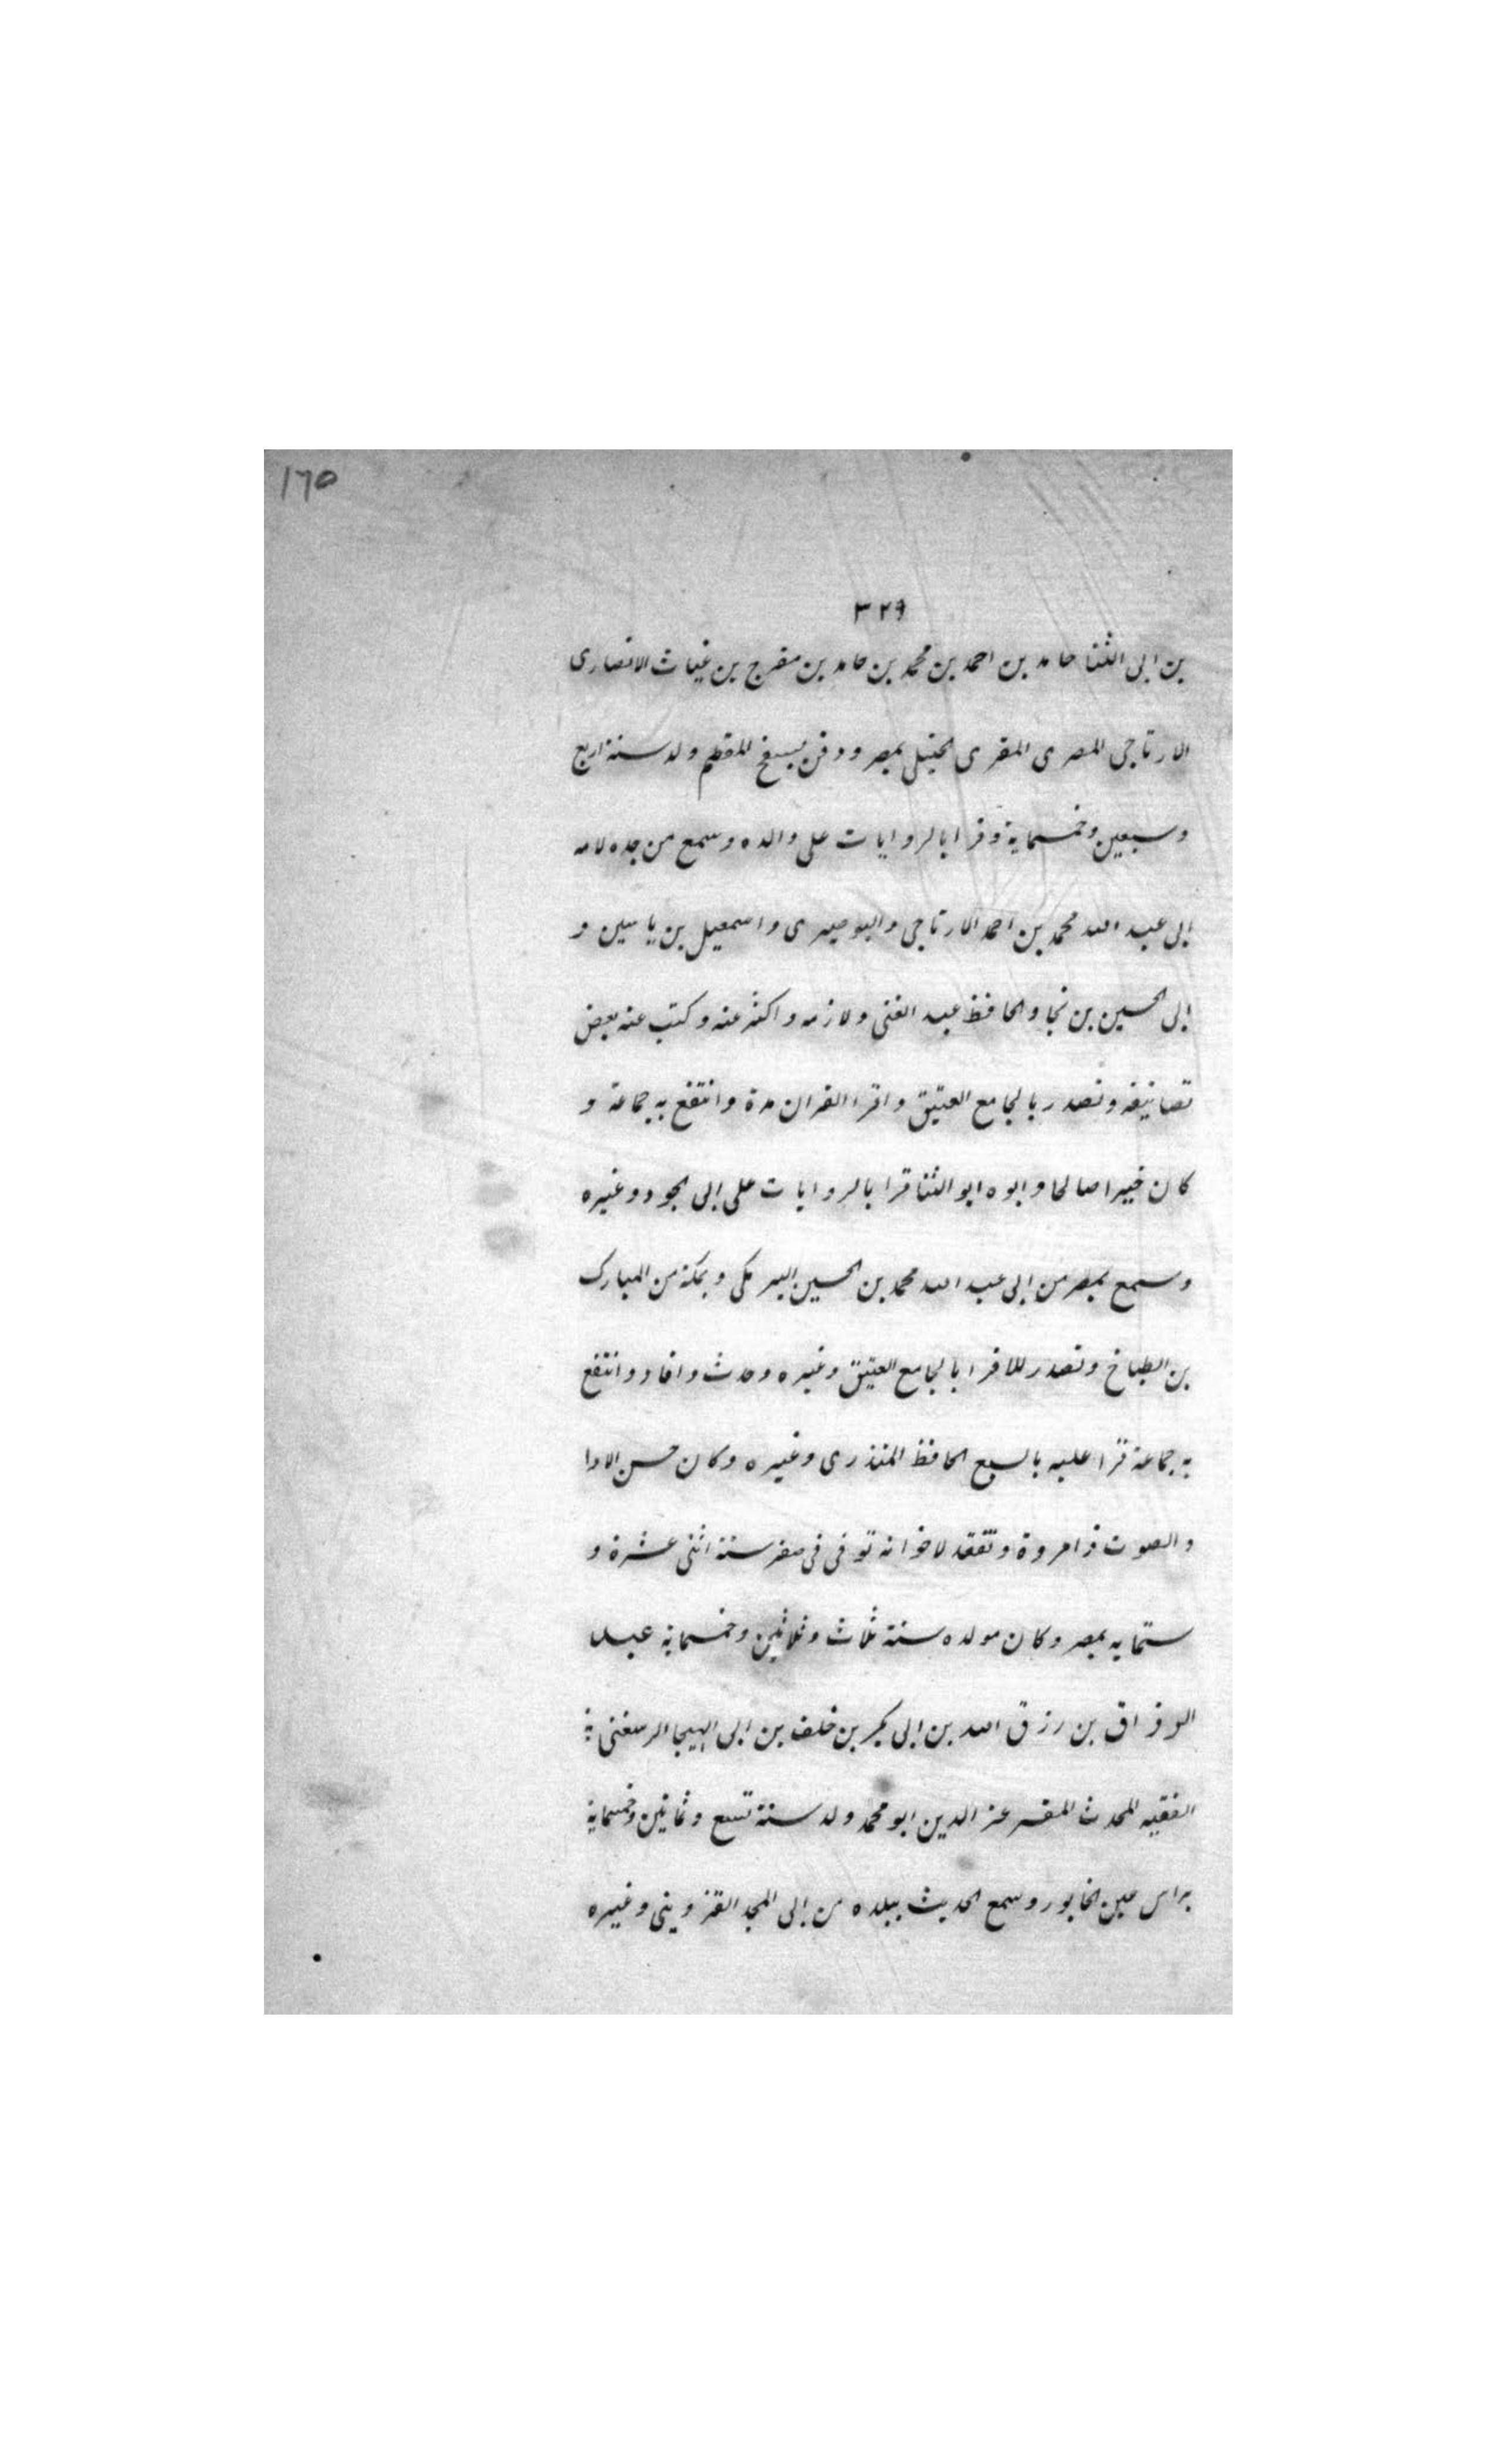 ١٦٥
٣٢٩
بن ابى الثنا حامد بن احمد بن محمد بن حامد بن مفرج بن غياث الانصارى
الارتاجى المصرى المقرى الحنبلى بمصر ودفن بسفح المقطم ولد سنة اربع
وسبعين وخمسماية وقرا بالروايات على والده وسمع من جده لامه
ابى عبد الله محمد بن احمد الارتاجى والبوصيرى واسمعيل بن ياسين و
ابى الحسين بن نجا والحافظ عبد الغنى ولازمه واكثر عنه وكتب عنه بعض
تصانيفه وتصدر بالجامع العتيق واقرا القران مدة وانتفع به جماعة و
كان خيرا صالحا وابوه ابو الثنا قرا بالروايات على ابى الجود وغيره
وسمع بمصر من ابى عبد الله محمد بن الحسين البرمكى وبمكة من المبارك
بن الطباخ وتصدر للاقرا بالجامع العتيق وغيره وحدث وافاد وانتفع
به جماعة قرا عليه بالسبع الحافظ المنذرى وغيره وكان حسن الادا
والصوت ذا مروة وتفقد لاخوانه توفى فى صفر سنة اثنى عشرة و
ستمايه بمصر وكان مولده سنة ثلاث وثلاثين وخمسماية عبد
الرزاق بن رزق الله بن ابى بكر بن خلف بن ابى الهيجا الرسغنى
الفقيه المحدث المفسر عز الدين ابو محمد ولد سنة تسع وثمانين وخمسماية
براس عين الخابور وسمع الحديث ببلده من ابى المجد القزوينى وغيره